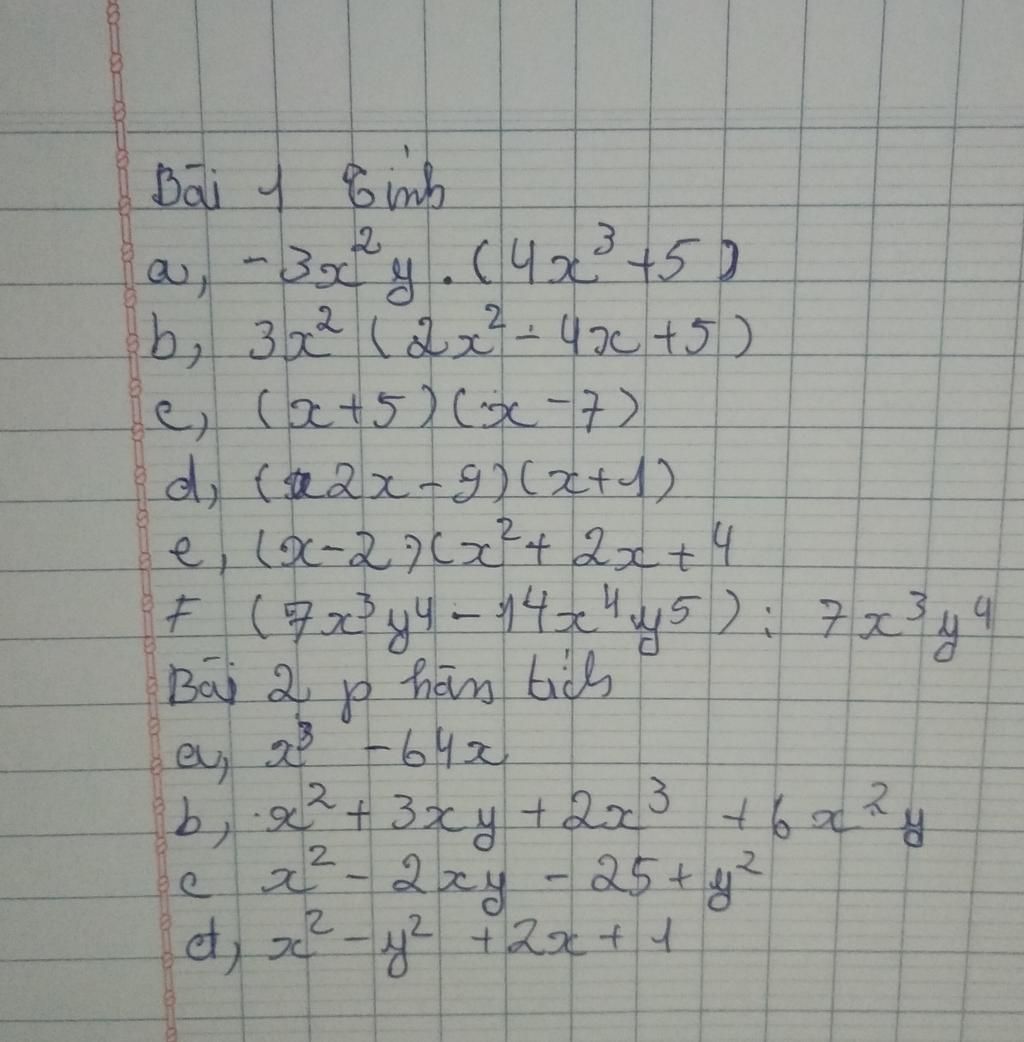 Bài 1 Tính
a, -3x²y.(4x³+5)
b, 3x²(2x²-4x+5)
c, (x+5)(x-7)
d, (2x-9)(x+1)
e, (x-2)(x²+2x+4
F (7x³y⁴-14x⁴y⁵): 7x³y⁴
Bài 2 phân tích
a, x³ -64x
b, x²+3xy+2x³ +6x²y
c x²-2xy-25+y²
d, x²-y²+2x+1